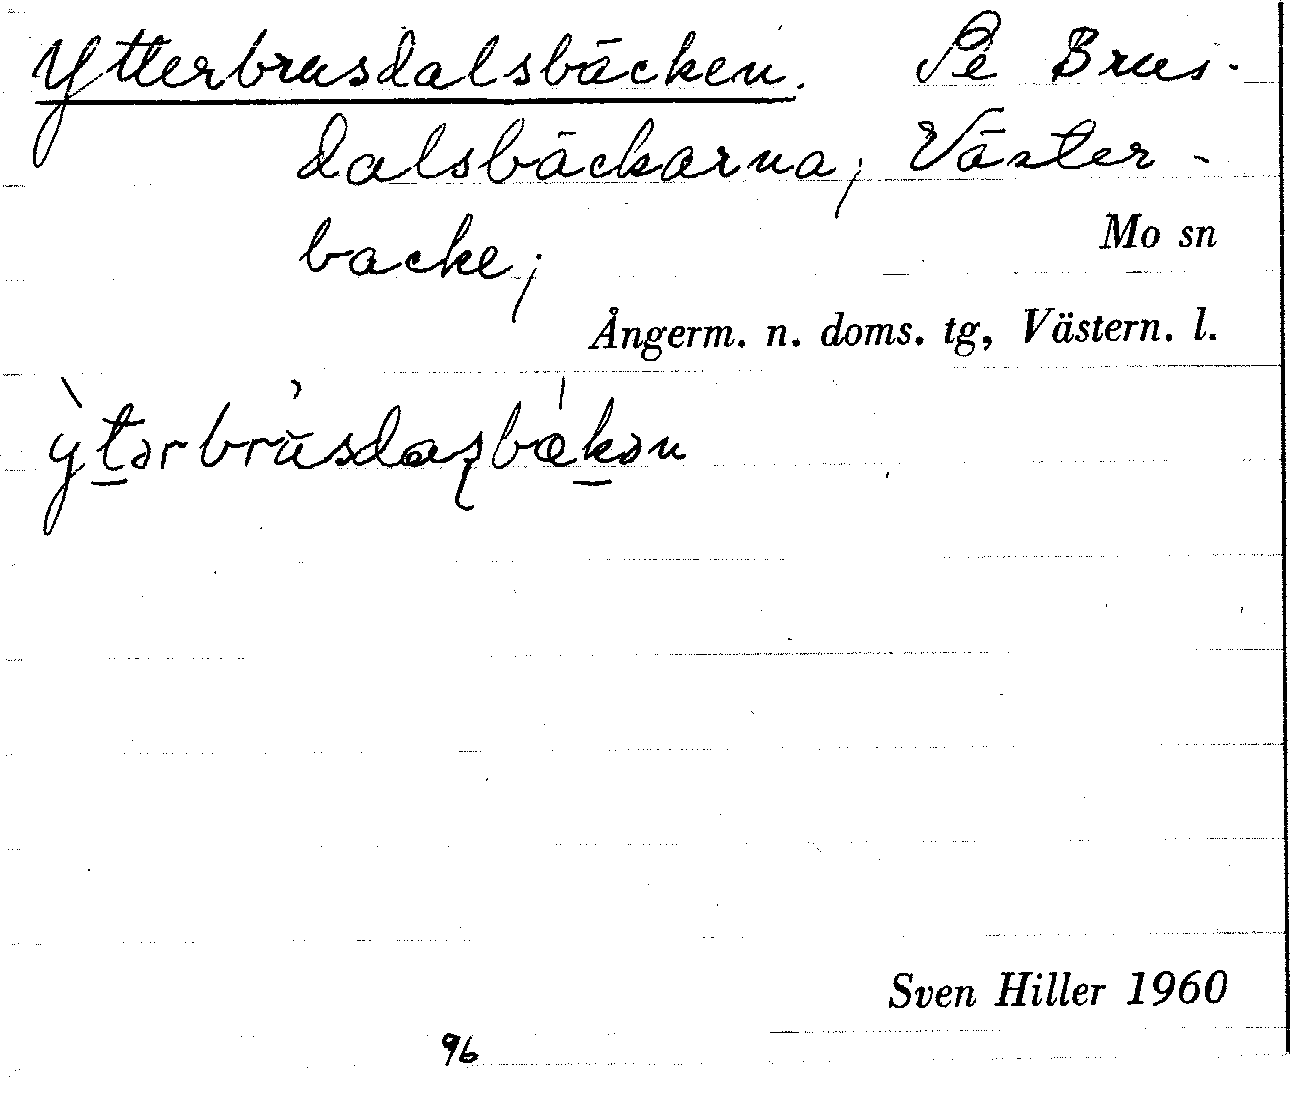 Ytterbrusdalsbäcken. Se Brus-
dalsbäckarna, Väster-
backe,
Mo sn
Ångerm. n. doms. tg, Västern. l.
Sven Hiller 1960
96